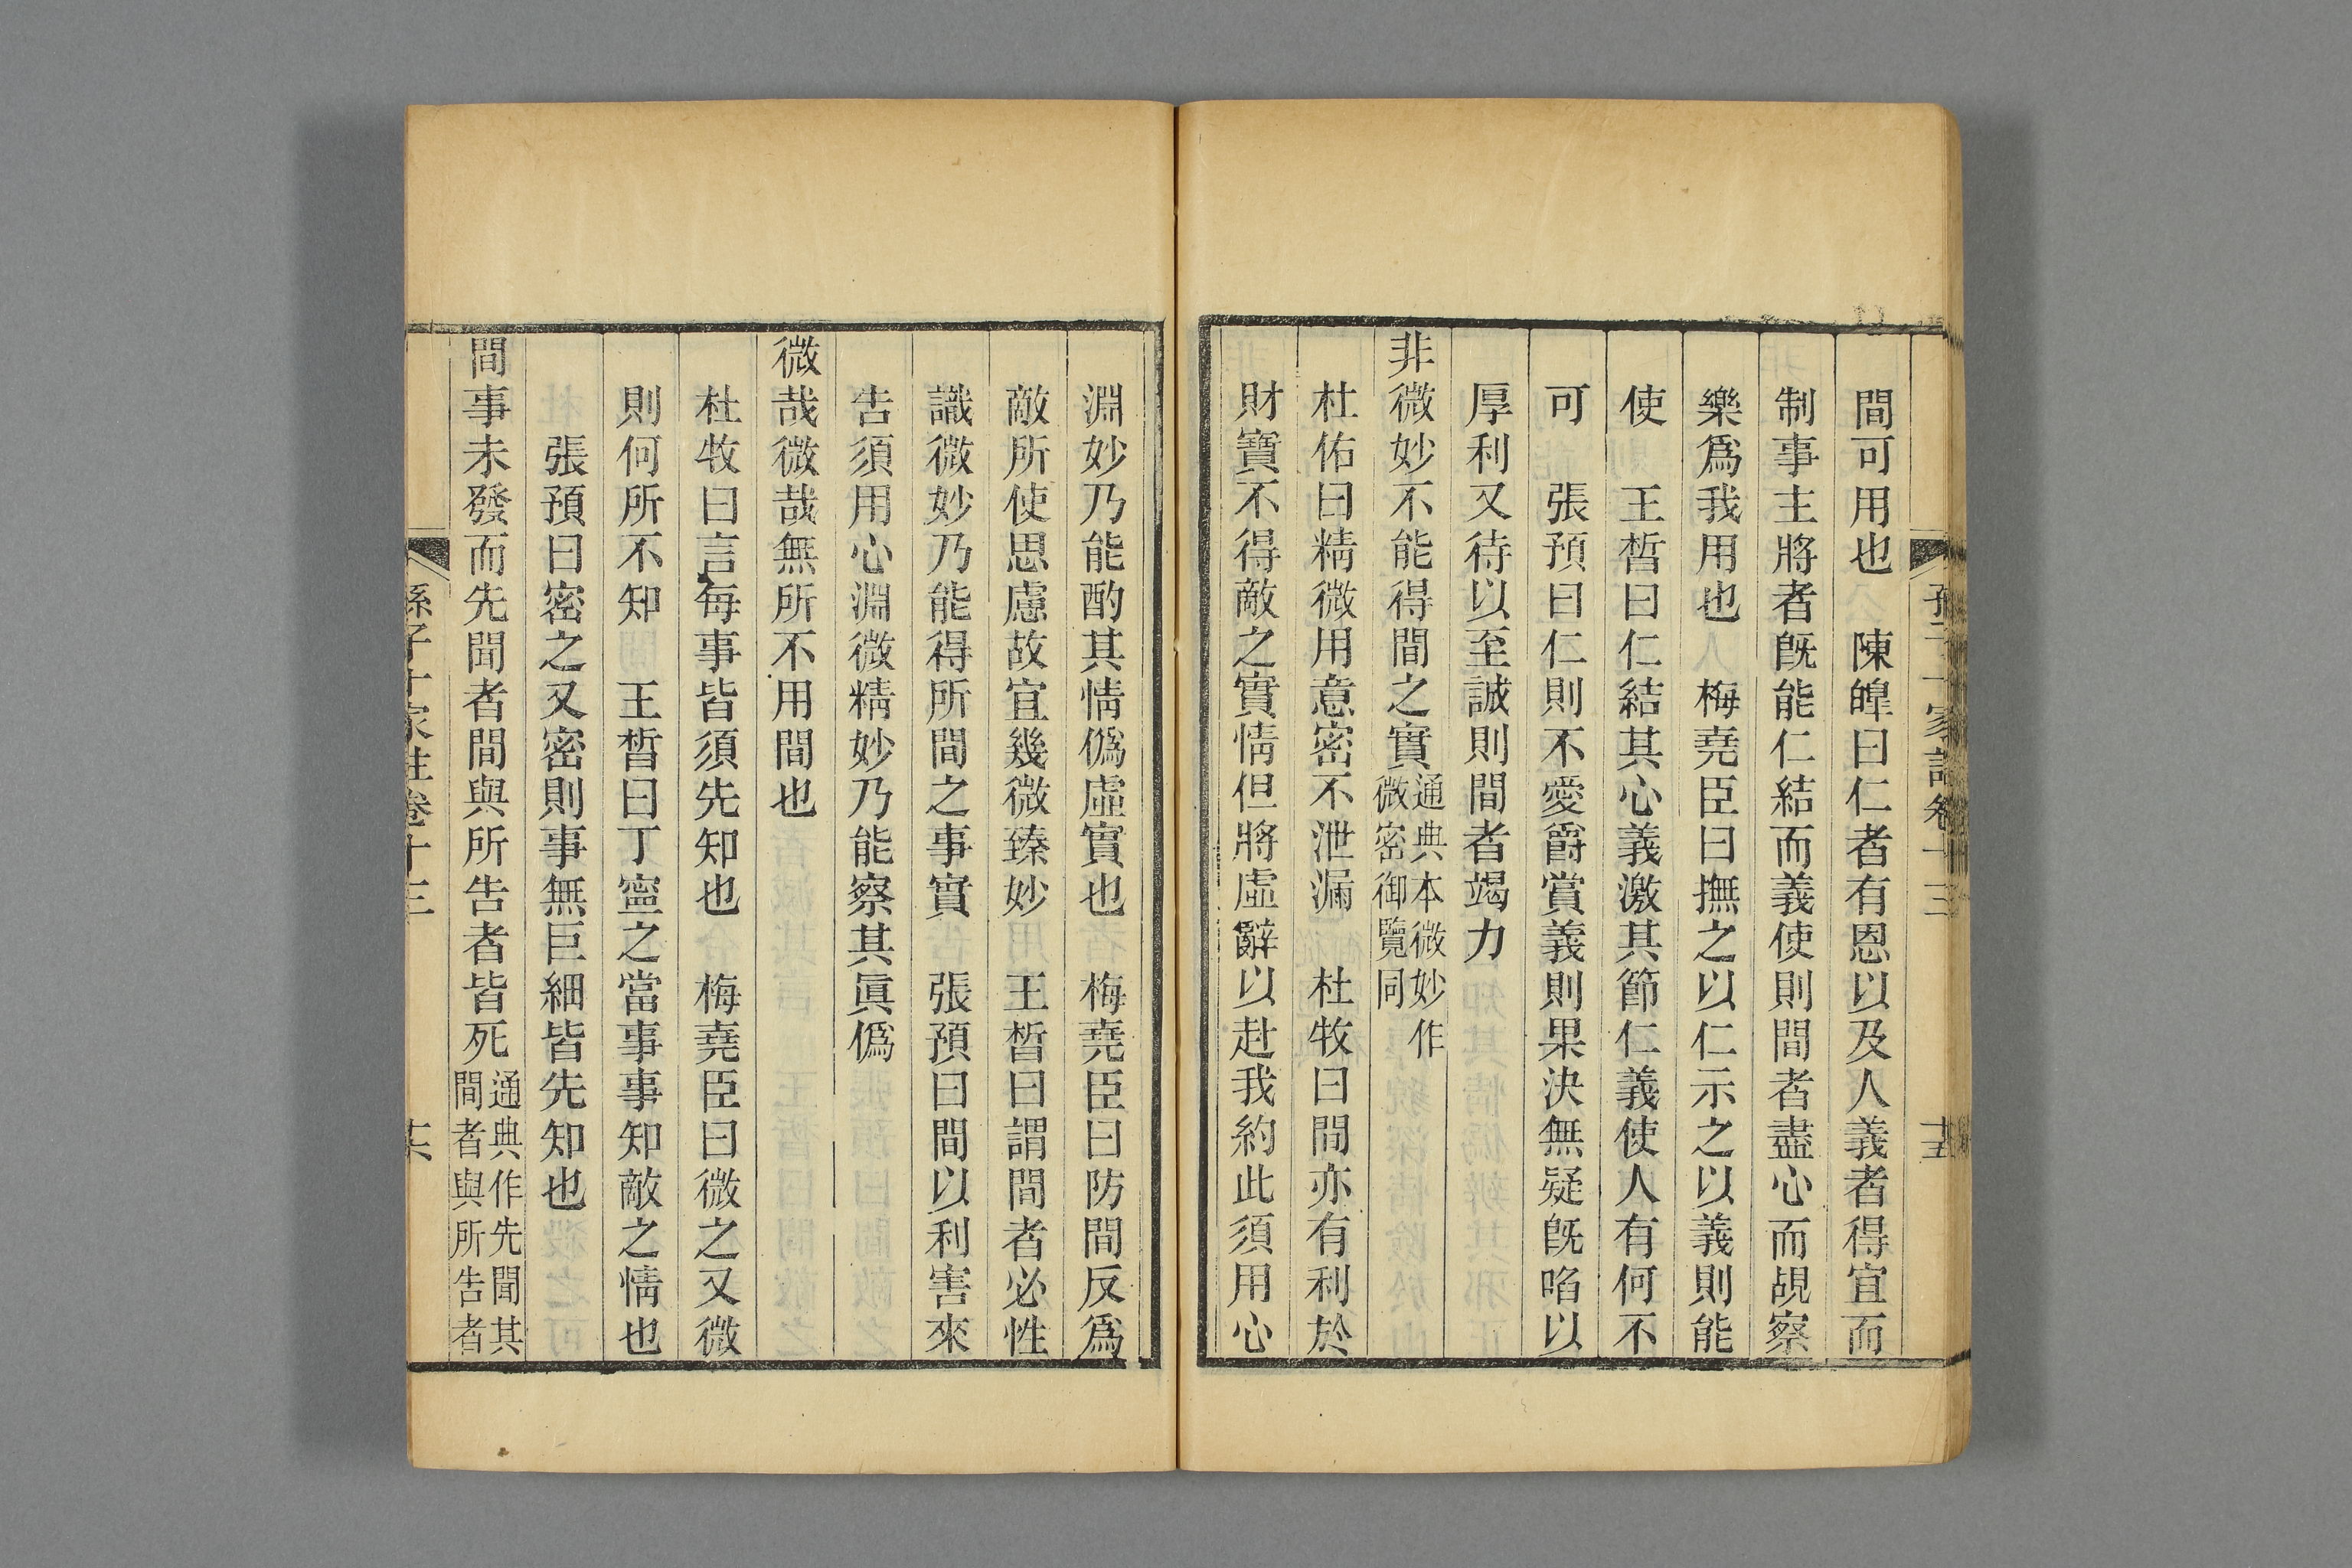 間可用也　陳皥曰仁者有恩以及人義者得宜而
制事主將者旣能仁結而義使則間者盡心而覘察
樂爲我用也　梅堯臣曰撫之以仁示之以義則能
使　王晳曰仁結其心義激其節仁義使人有何不
可　張預曰仁則不愛爵賞義則果決無疑旣啗以
厚利又待以至誠則間者竭力
非微妙不能得間之實通典本微妙作
微密御覽同
杜佑曰精微用意密不泄漏　杜牧曰間亦有利於
財寶不得敵之實情但將虛辭以赴我約此須用心
淵妙乃能酌其情僞虛實也　梅堯臣曰防間反爲
敵所使思慮故宜幾微臻妙　王晳曰謂間者必性
識微妙乃能得所間之事實　張預曰間以利害來
告須用心淵微精妙乃能察其眞僞
微哉微哉無所不用間也
杜牧曰言每事皆須先知也　梅堯臣曰微之又微
則何所不知　王晳曰丁寧之當事事知敵之情也
張預曰密之又密則事無巨細皆先知也
間事未發而先聞者間與所告者皆死通典作先聞其
間者與所告者
孫子十家註卷十三